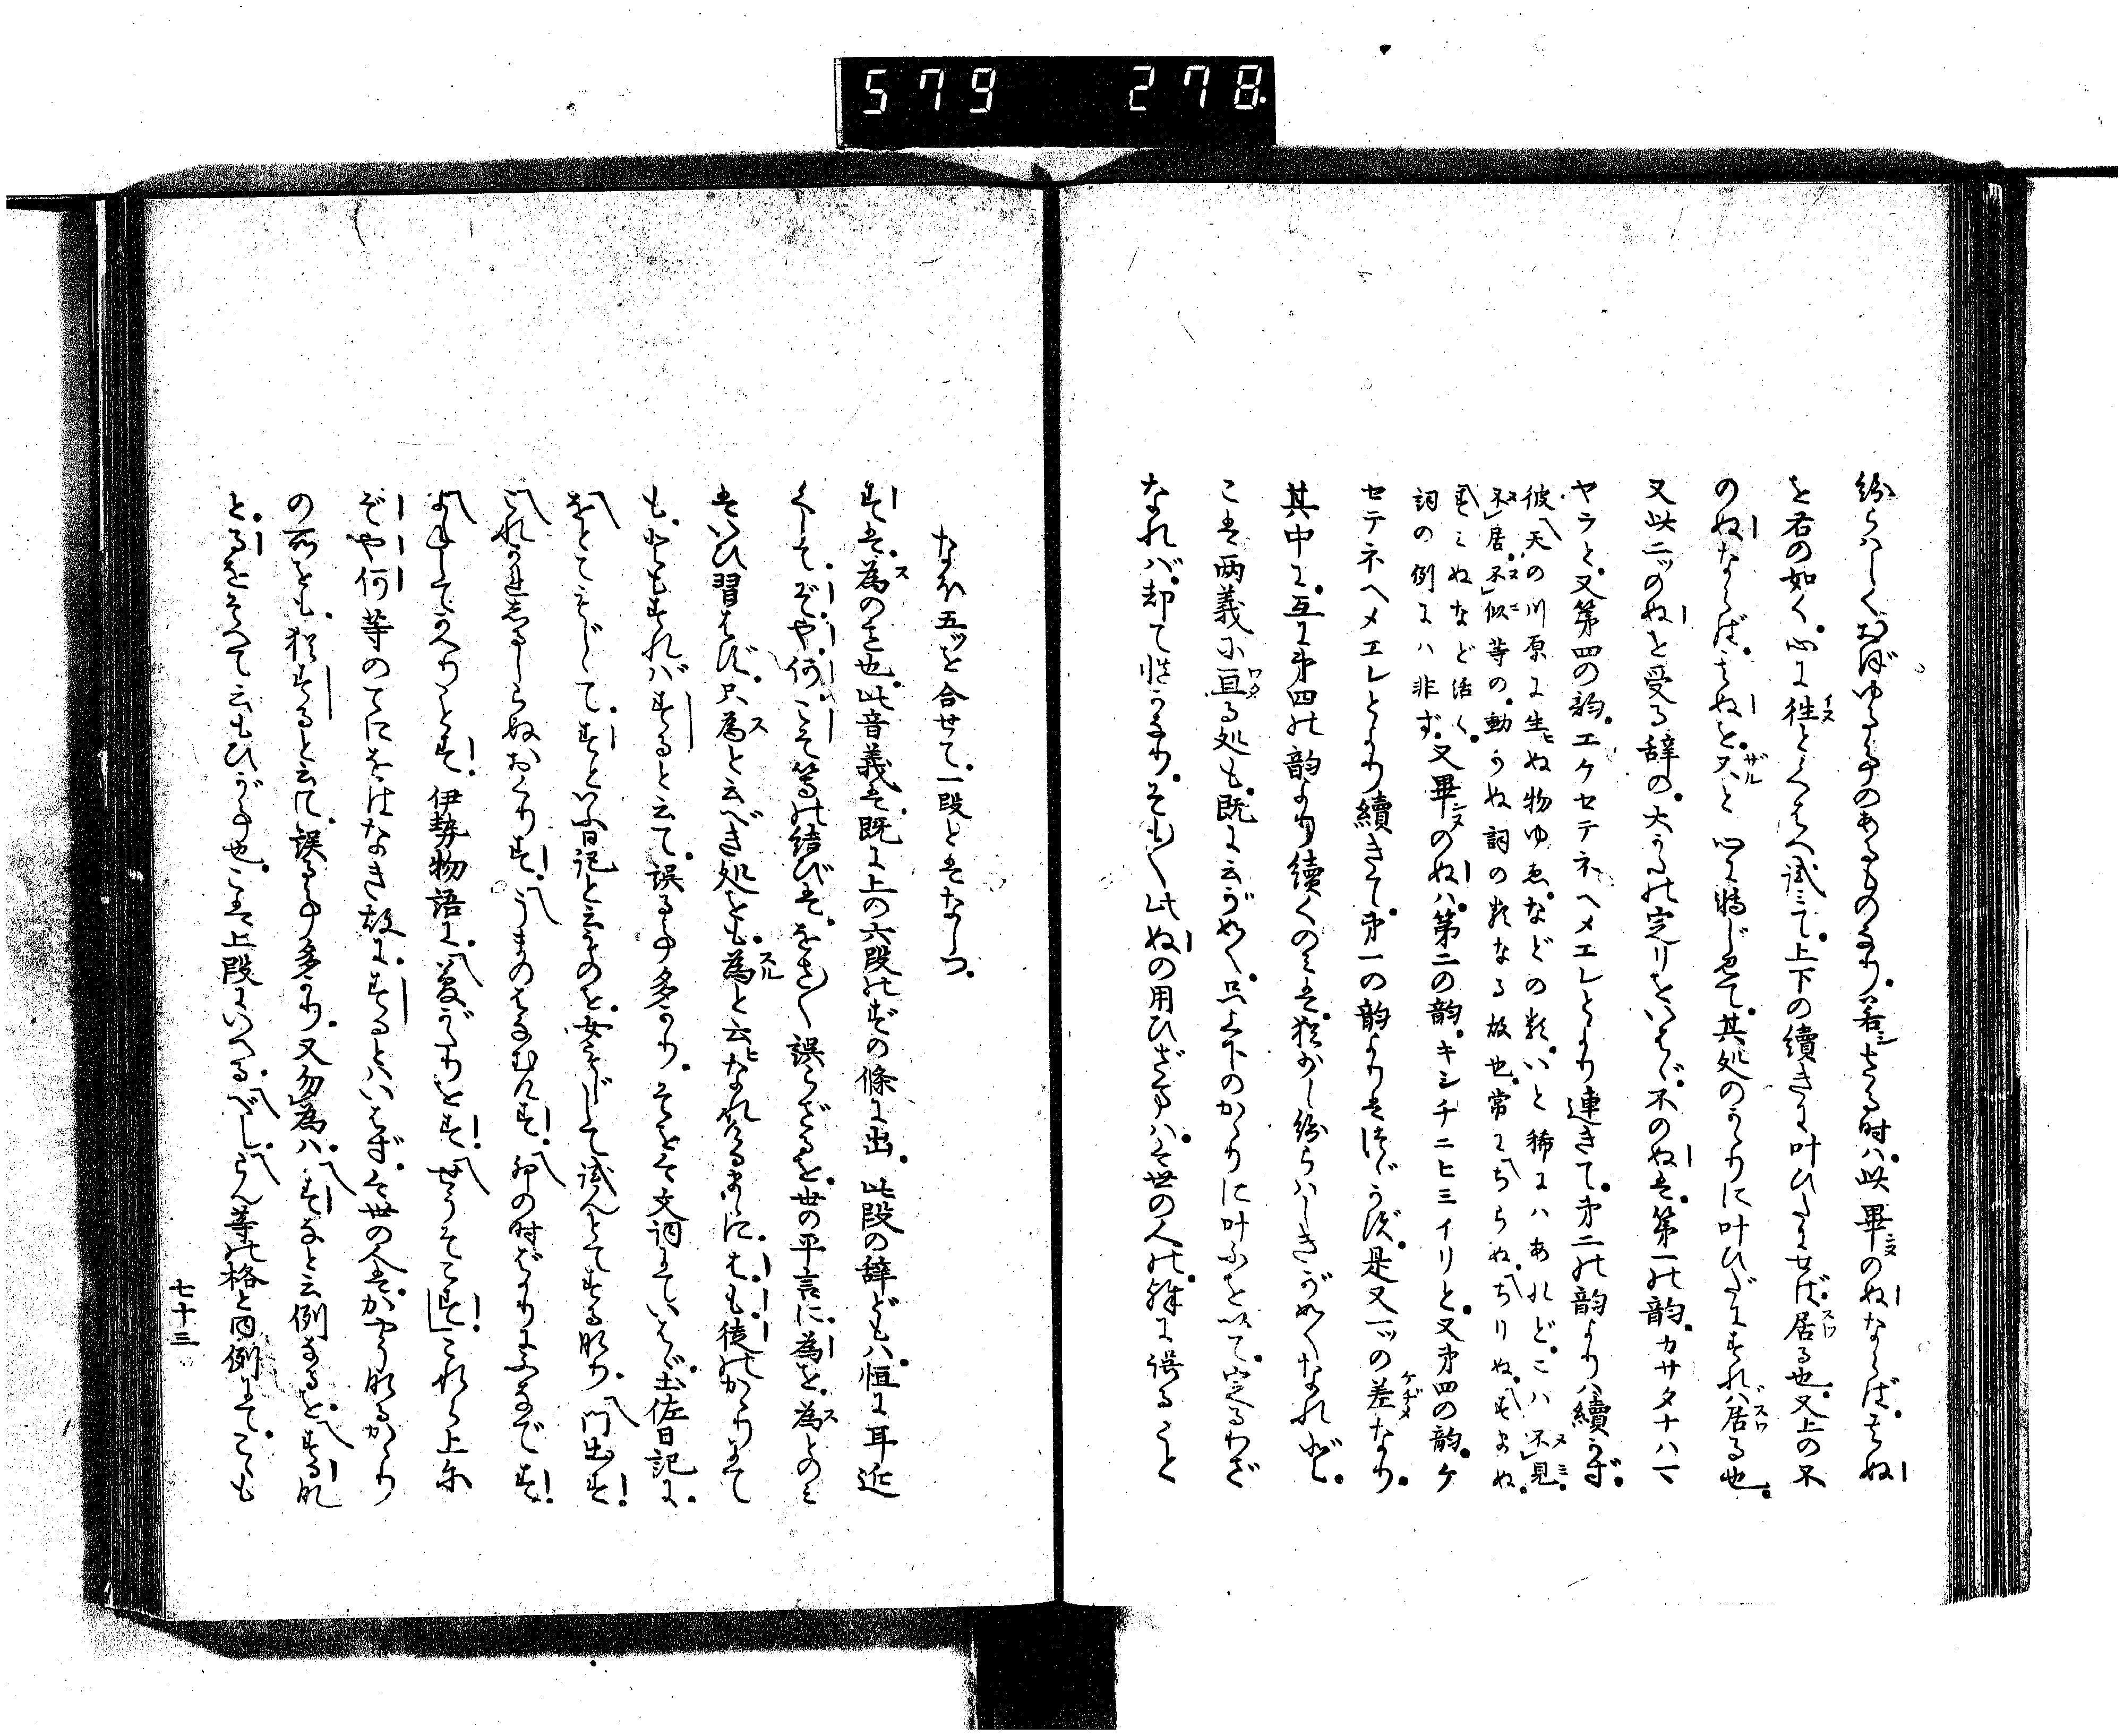 579 278
紛らはしくおぼゆる事のあるものなり。若シさる時ハ、此畢ヌのぬならば、きぬ
を右の如く、心に往イヌとくはへ試ミて、上下の續きに叶ひたらば、居スワる也。又上の不
のぬならば、きぬと、又ザルと心に将じ宛て、其処のかゝりに叶ひだにすれバ居スワる也。
又此二ッのぬを受る辞の、大かたの定リをいはゞ、不のぬは、第一の韵、カサタナハマ
ヤラと、又第四の韵、エケセテネヘメエレとより連きて、第二の韵よりハ續かず。
彼天の川原に生ヒぬ物ゆゑ、などの類、いと稀にハあれど、こハ不見ヌミ、
不居、不似ヌニ等の、動かぬ詞の類なる故也。常にちらぬ、ちりぬ、すまぬ、
すミぬなど活く、
詞の例にハ非ず。又畢ヌのぬハ、第二の韵、キシチニヒミイリと、又第四の韵、ケ
セテネヘメエレとより續きて、第一の韵よりはつゞかず。是又一ッの差ケヂメなり。
其中に、互に第四の韵より續くのミは、猶少し紛らハしきがごとくなれど、
こは兩義に亘ワタる処も、既に云がごとく、只上下のかゝりに叶ふを以て、定るわざ
なれバ、却て惟かなり。そも〳〵此ぬの用ひざまハ、今世の人の、殊に誤ること
なれ五ッを合せて、一段とはなしつ。
すは、為スのす也。此音義は、既に上の六段のずの條に出。此段の辞どもハ、恒に耳近
くして、ぞ、や、何、こそ等の結びは、をさ〳〵誤らざるを、世の平言に、為を、為スとのミ
はいひ習はず、只為スと云べき処をも、為スルと云ヒなれたるまゝに、は、も、徒のかゝりにて
も、ともすれバするといて、誤る事多かり。そを今文詞にていはゞ、土佐日記に、
をとこもじて、すといふ日記と云ものを、女もじして試んとてする也。門出す。
これかれしるしらぬおくりす。うまのはなむけす。卯の時ばかりにふなです。
よねしてかへりごとす。伊勢物語に、夏がりをす。せうそこす。これら上に
ぞや何等のてにをはなき故に、するとハいはず。今世の人は、かやうなるかゝり
の所をも、猶するといひて、誤る事多かり。又勿為ハ、すなと云例なるを、するな
と、るをそへて云もひが事也。こは上段にいへる、べし、らん等の格と同例にて、こゝも
七十三